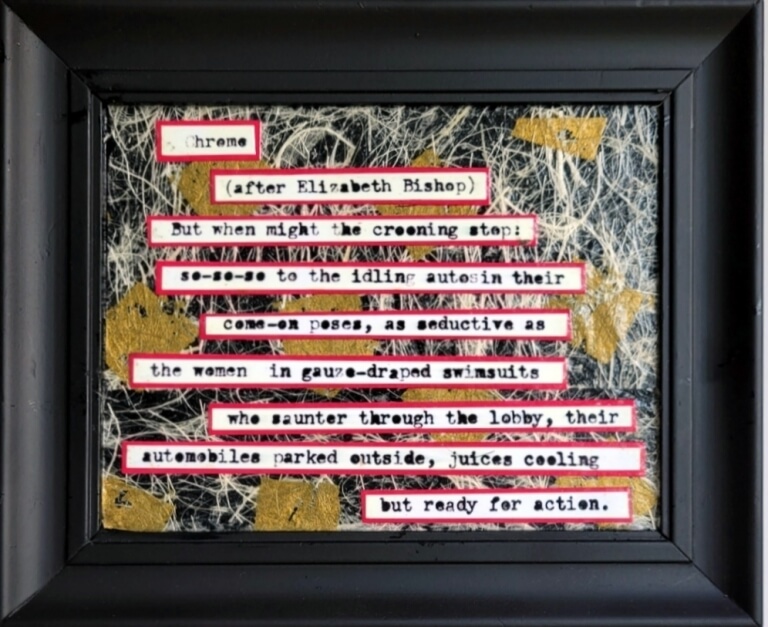 Chrome
(after Elizabeth Bishop)
But when might the crooning stop:
so-so-so to the idling autosin their
come-on poses, as seductive as
the women in gauze-draped swimsuits
who saunter through the lobby, their
automobiles parked outside, juices cooling
but ready for action.